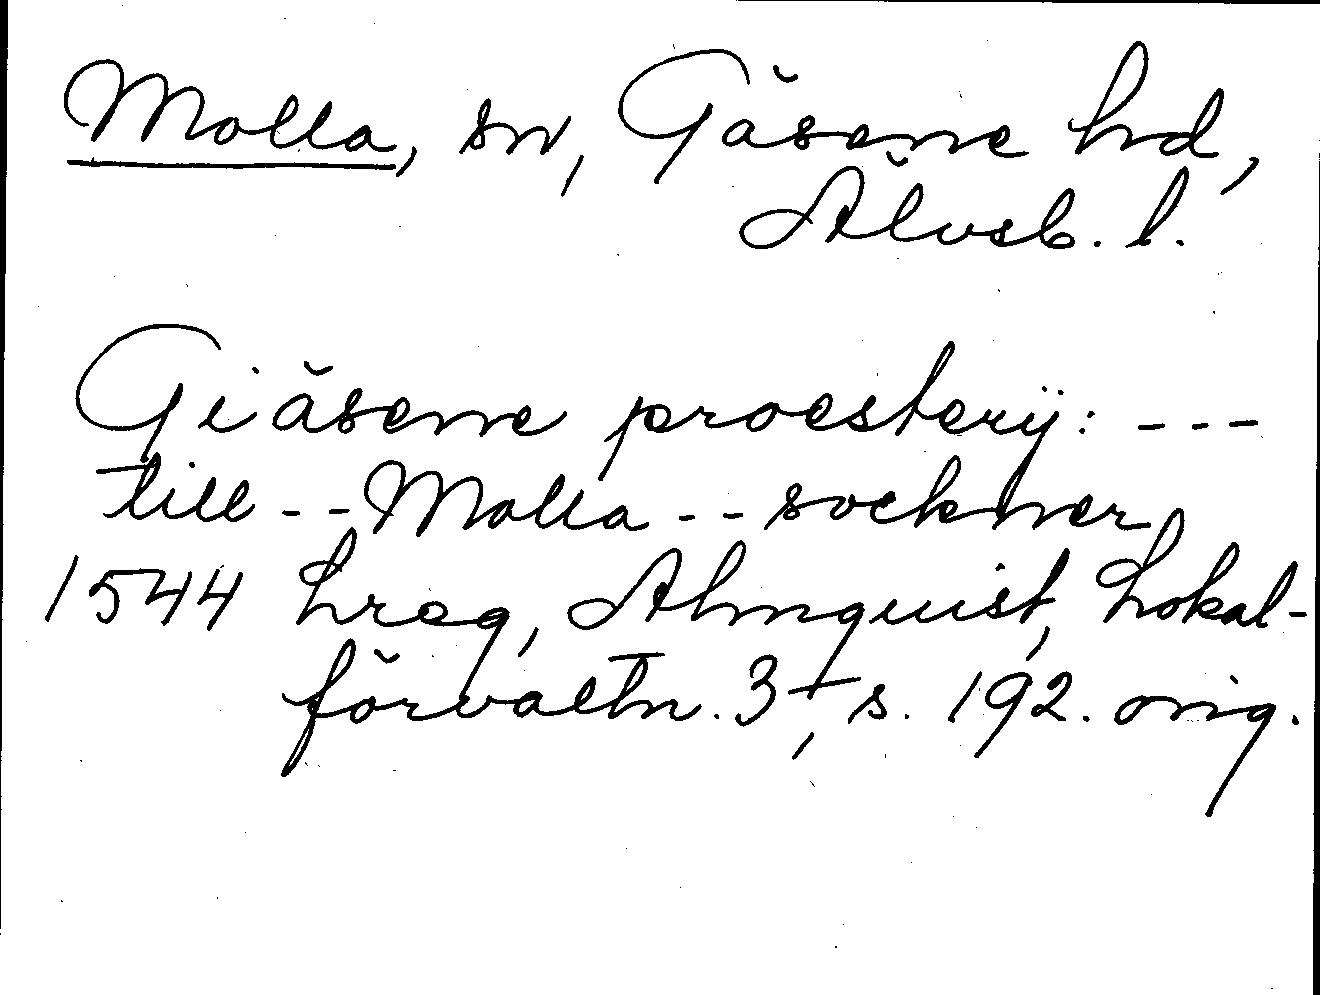 Molla, sn, Gäsene hd,
Älvsb. l.
Giäsene proesterij: ---
till -- Molla -- sockner
1544 Lreg, Almquist, Lokal-
förvaltn. 3, s. 192. orig.